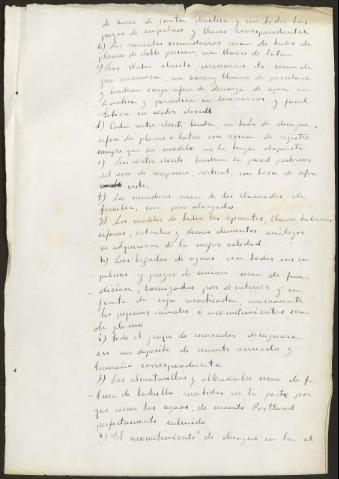 de hierro de junta elástica y con todas las
piezas de empalme y llaves correspondientes.
b) Los ramales secundarios serán de tubo de
plomo de doble presión, con llaves de latón.
c) Los Water-closets, urinarios etc. serán de
gres, con barniz blanco de porcelana
y tendrán aparatos de descarga de agua au-
tomática y periódica en urinarios, y facul-
tativa en water-closets
d) Cada water-closet tendrá, en tubo de desagüe,
sifón de plomo o latón con rosca de registro
siempre que su modelo no la tenga dispuesta
e) Los water-closets tendrán la pared posterior
del vaso de recepción, vertical, con boca de sifón
visible.
f) Los inodoros serán de los llamados de
familia, con pie alargado
g) Los modelos de todos los aparatos, llaves, tuberías
sifones, válvulas y demás elementos análogos
se adquirirán de la mejor calidad
h) Las bajadas de aguas con todos sus em-
palmes y piezas de unión serán de fun-
dición, barnizadas por el interior y con
junta de masticada, únicamente
los pequeños ramales o acometimientos serán
de plomo
i) Todo el grupo de excusados desaguará
en un depósito de cemento armado y
tamaño correspondiente
j) Las alcantarillas y albañales serán de fá-
brica de ladrillo revestidas en la parte por
que corren las aguas, de cemento Portland
perfectamente enlucido
k) El acometimiento de desagüe en las al